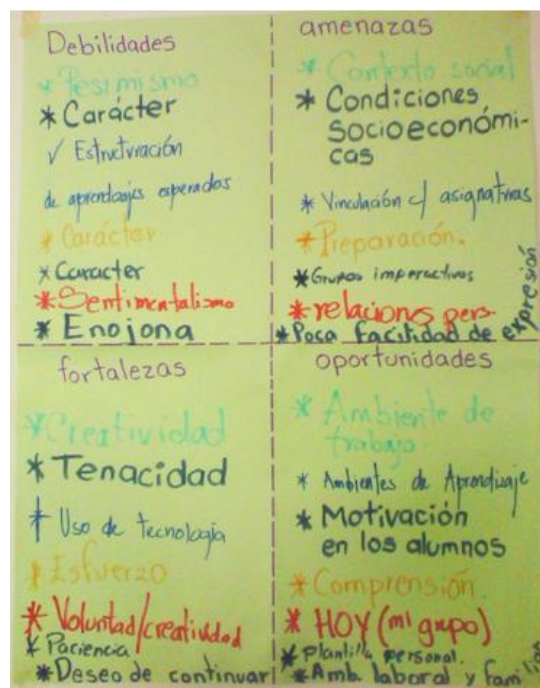 Debilidades
* Pesimismo
* Carácter
✓ Estructuración
de aprendizajes esperados
* Carácter
* Caracter
* Sentimentalismo
* Enojona
amenazas
* Contexto social
* Condiciones
socioeconómi-
cas
* Vinculación c/ asignatuas
* Preparación.
* Grupos imperactivos
* relaciones pers.
* Poca facilidad de expresión
fortalezas
* Creatividad
* Tenacidad
* Uso de tecnología
* Esfuerzo
* Voluntad/creatividad
* Paciencia
* Deseo de continuar
oportunidades
* Ambiente de
trabajo
* Ambientes de Aprendizaje
* Motivación
en los alumnos
* Comprensión.
* HOY (mi grupo)
* Plantilla personal.
* Amb. laboral y familiar